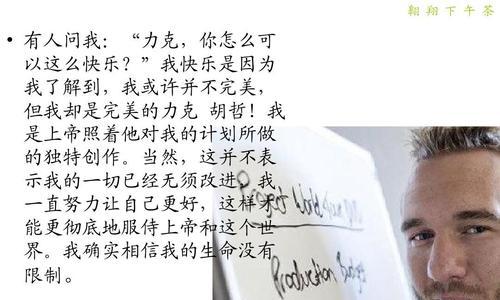 翱翔下午茶
• 有人问我：“力克，你怎么可
以这么快乐？”我快乐是因为
我了解到，我或许并不完美，
但我却是完美的力克 胡哲！我
是上帝照着他对我的计划所做
的独特创作。当然，这并不表
示我的一切已经无须改进。我
一直努力让自己更好，这样才
能更彻底地服侍上帝和这个世
界。我确实相信我的生命没有
限制。
Project World
Production Budget